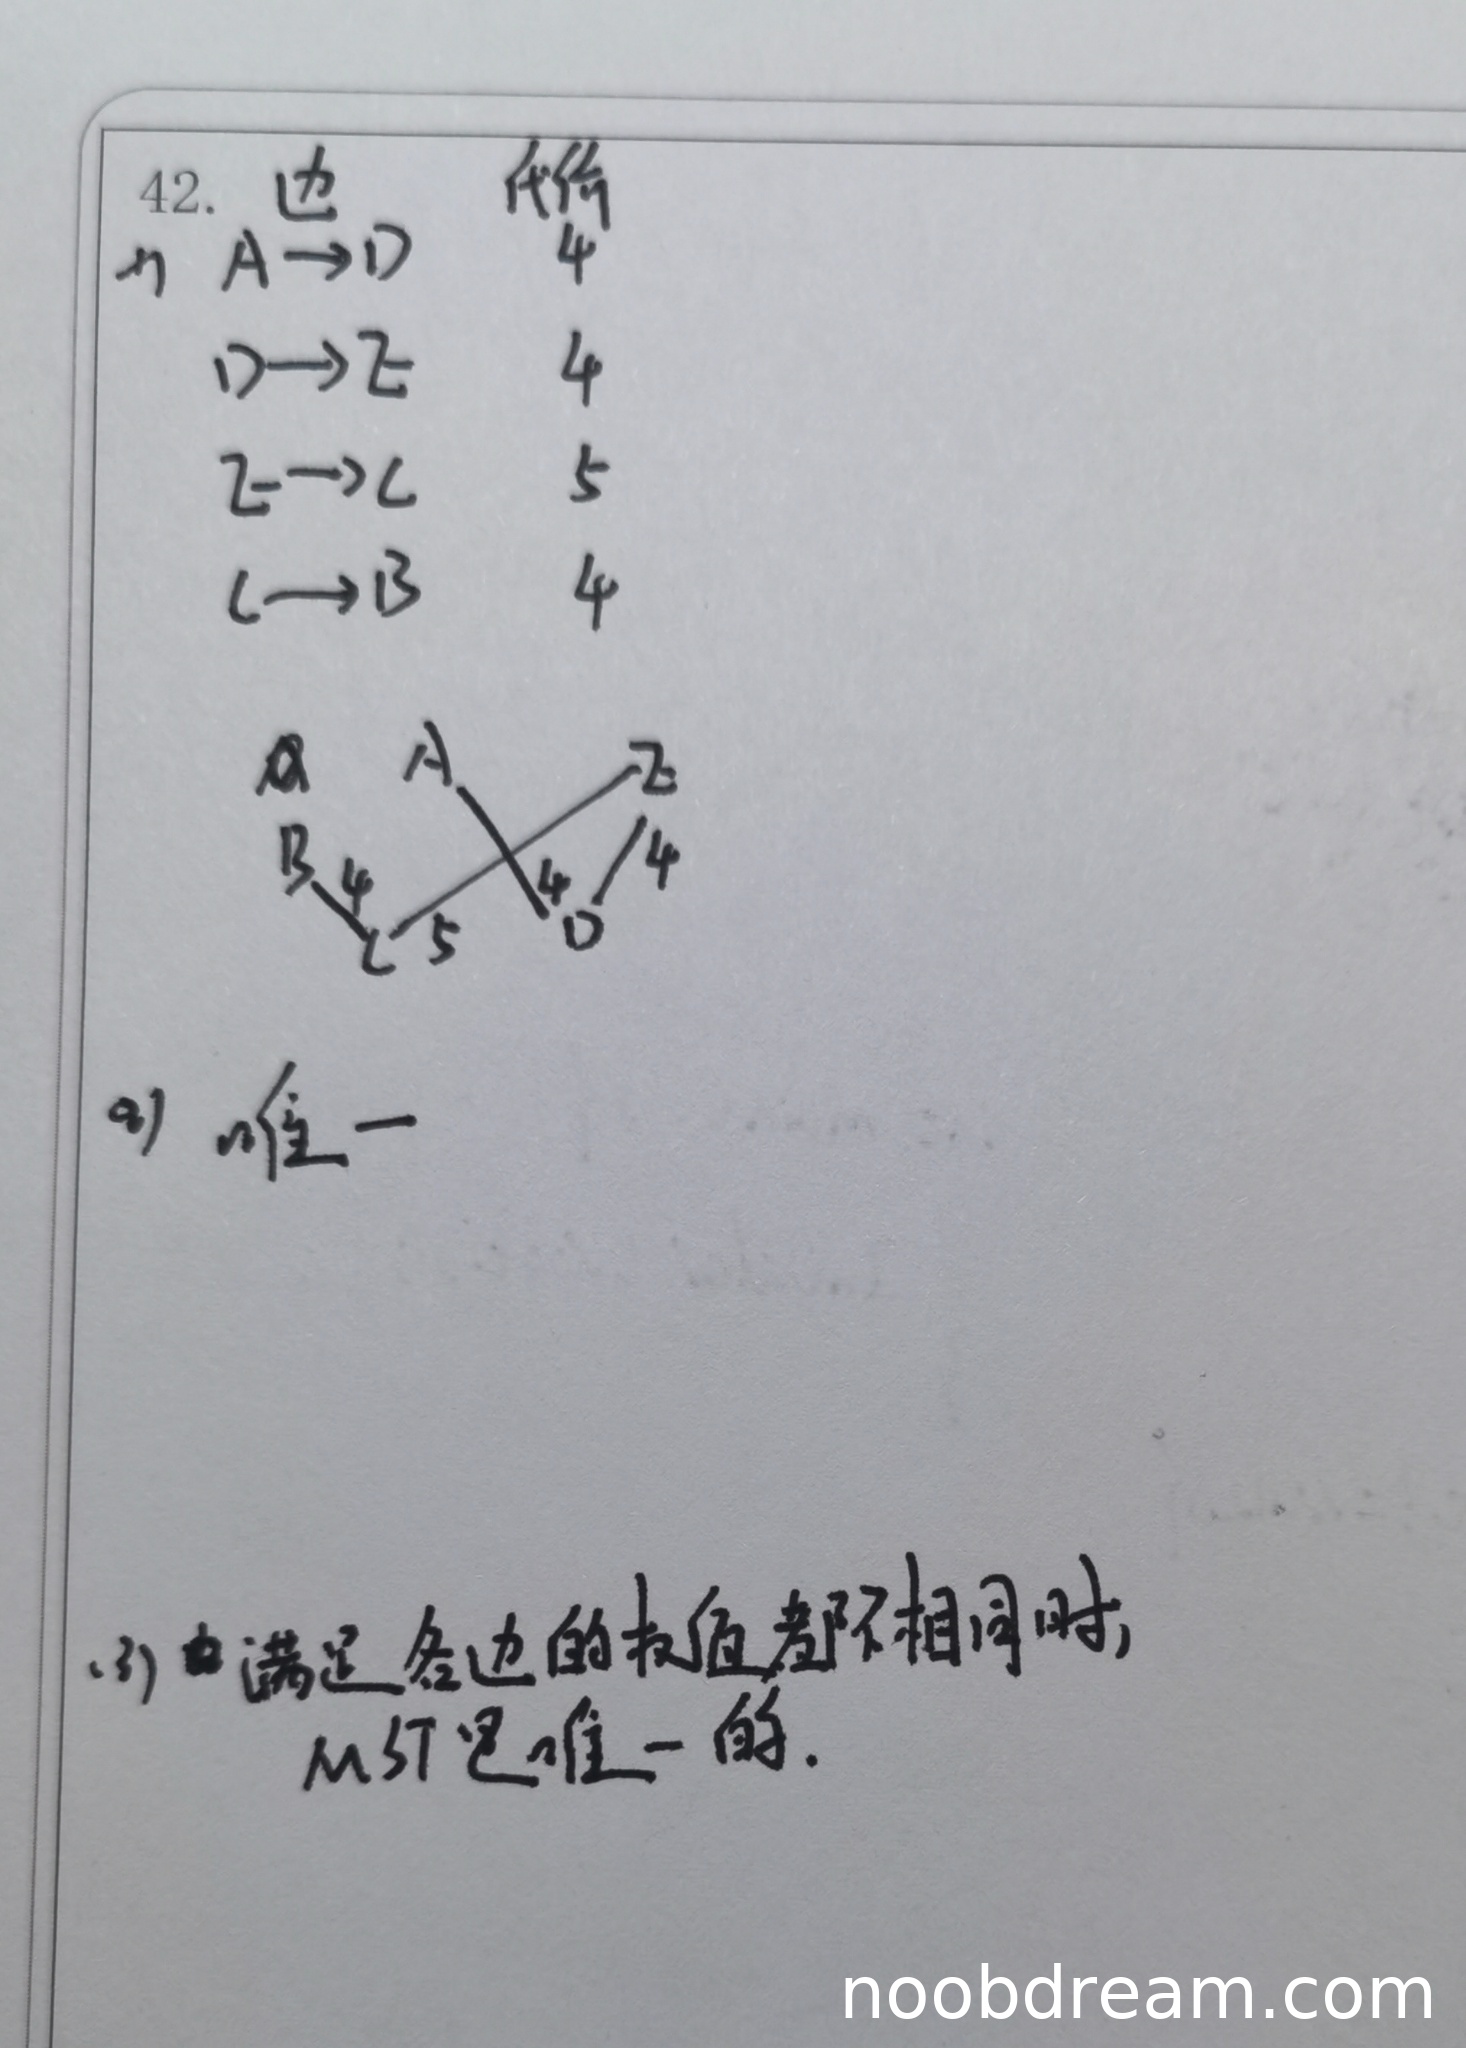 42. 边 代价
(1) A→D 4
D→E 4
E→C 5
C→B 4
A E
B 4 4 4
C 5 D
(2) 唯一
(3) 满足各边的权值都不相同时,
MST是唯一的.
noobdream.com